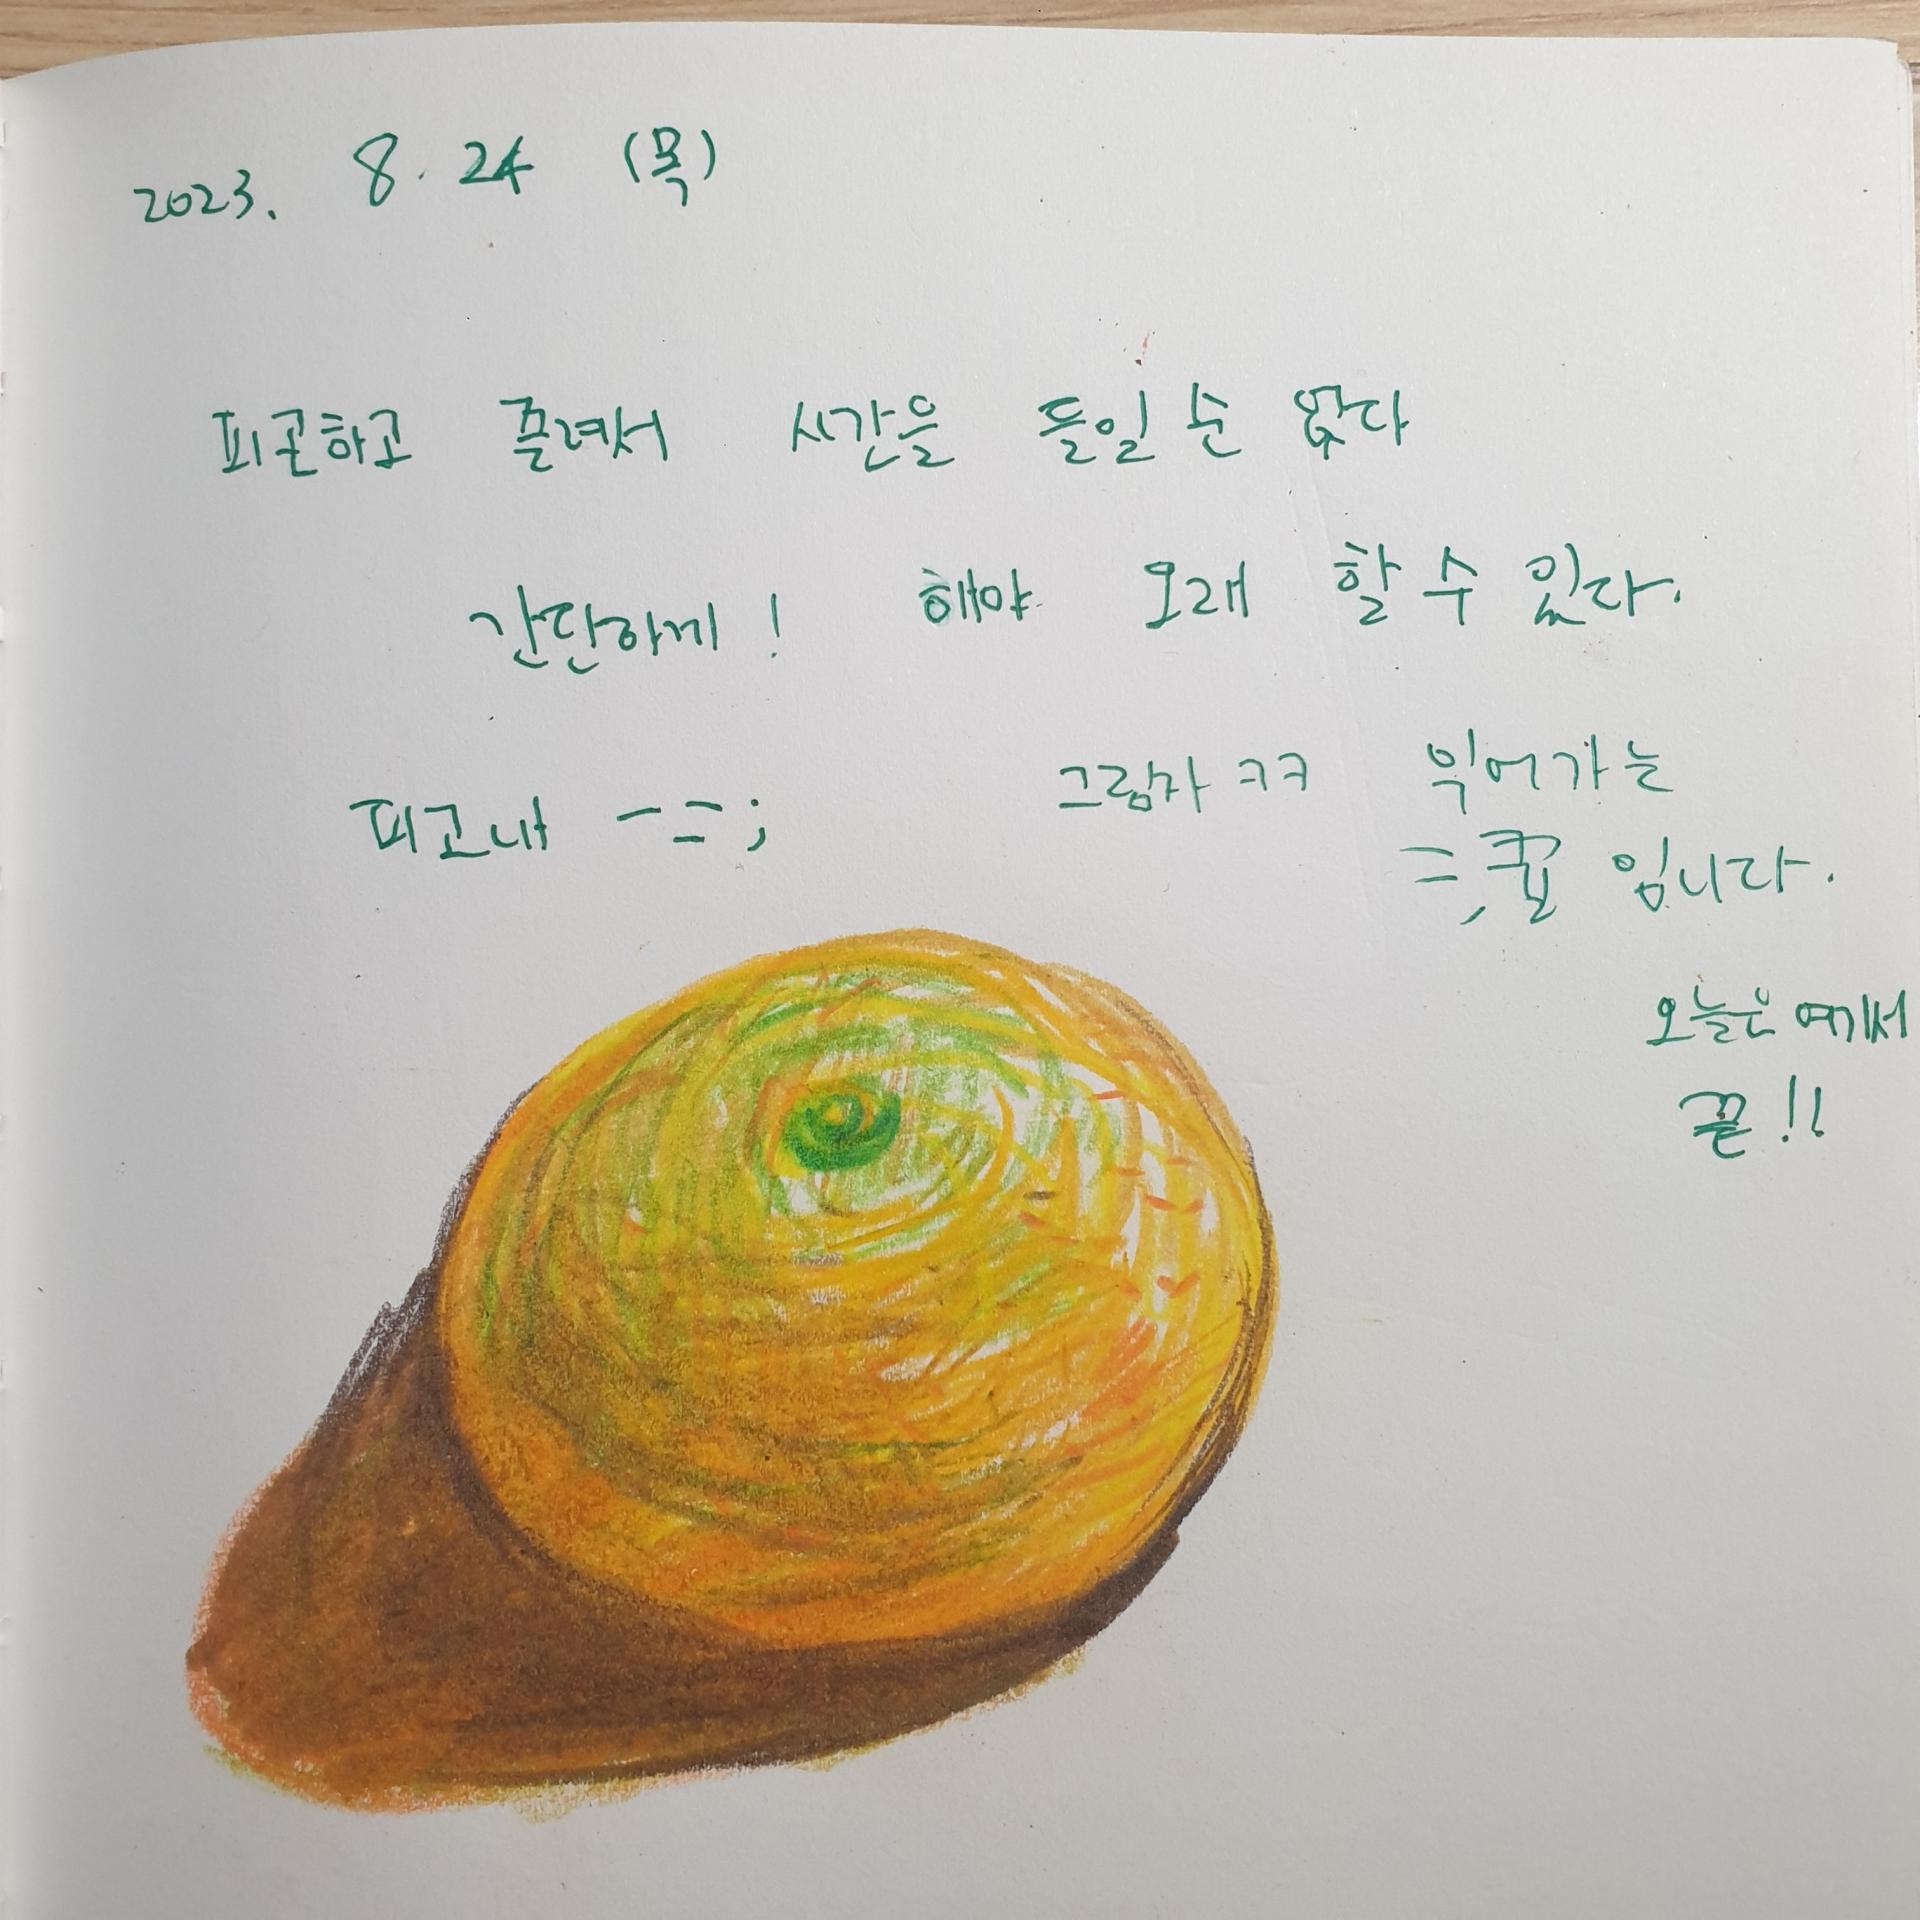 2023. 8. 24 (목)
피곤하고 졸려서 시간을 들일 순 없다
간단하게! 해야 오래 할 수 있다.
피고내 -=;
그림자 ㅋㅋ
익어가는
귤 입니다.
오늘은 여기서
끝!!